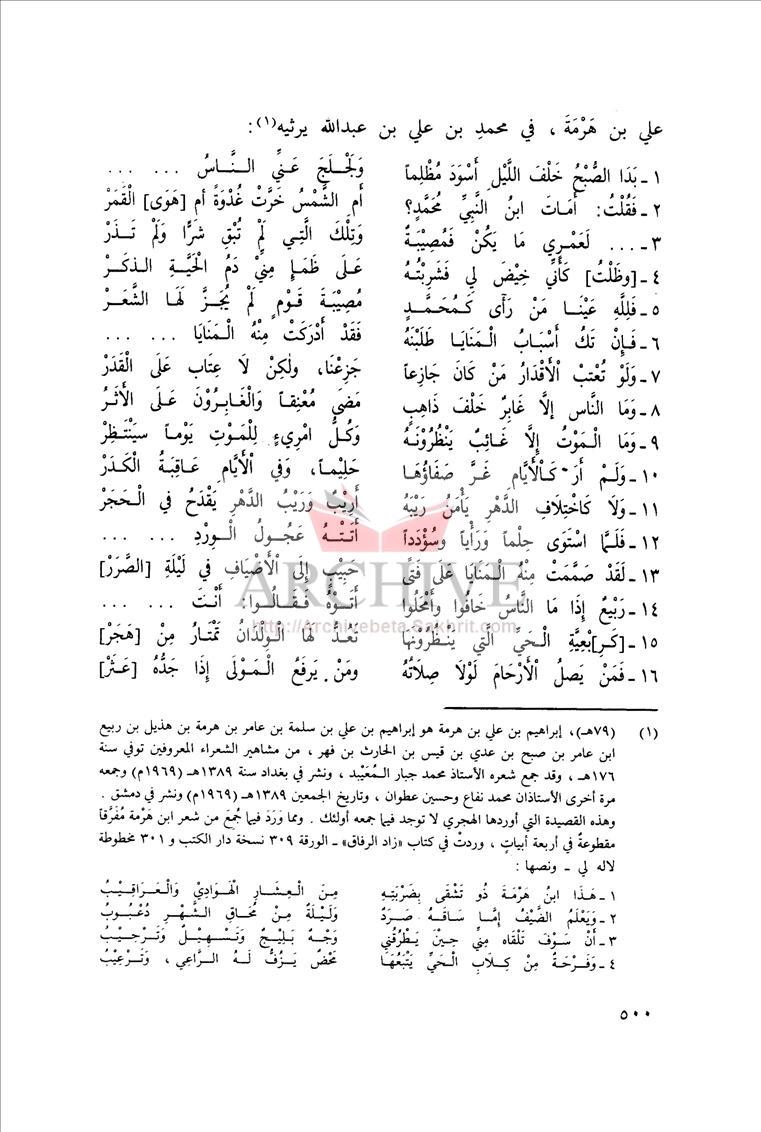 علي بن هَرْمَةَ ، في محمدِ بن علي بن عبدالله يرثيه(١) :
١ ـ بَدَا الصُّبْحُ خَلْفَ اللَّيْلِ أَسْوَدَ مُظْلِماً وَلَجْلَجَ عَنِّي النَّاسُ ... ...
٢ ـ فَقُلْتُ: أَمَاتَ ابنُ النَّبِيِّ مُحَمَّدٍ؟ أَم الشَّمْسُ خَرَّتْ غُدْوَةً أم [هَوَى] الْقَمَرْ
٣ ـ ... لَعَمْرِي مَا يَكُنْ فَمُصِيْبَةٌ وَتِلْكَ الَّتِي لَمْ تُبْقِ شَرًّا وَلَمْ تَذَرْ
٤ ـ [وظَلْتُ] كَأَنِّي خِيْضَ لِي فَشَرِبْتُهُ عَلَى ظَمَإٍ مِنِّي دَمُ الْحَيَّةِ الذكَرْ
٥ ـ فَلِلَّهِ عَيْنَا مَنْ رَأَى كَمُحَمَّدٍ مُصِيْبَةَ قَوْمٍ لَمْ يُجَزَّ لَهَا الشَّعَرْ
٦ ـ فَإِنْ تَكُ أَسْبَابُ الْمَنَايَا طَلَبْنَهُ فَقَدْ أَدْرَكَتْ مِنْهُ الْمَنَايَا ... ...
٧ ـ وَلَوْ تُعْتِبْ الْأَقْدَارُ مَنْ كَانَ جَازِعاً جَزِعْنَا، ولٰكِنْ لَا عِتَاب عَلَى الْقَدَرْ
٨ ـ وَمَا النَّاس إلَّا غَابِرٌ خَلْفَ ذَاهِبٍ مَضَى مُعْنِقاً وَالْغَابِرُوْنَ عَلَى الْأَثَرْ
٩ ـ وَمَا الْمَوْتُ إلَّا غَائِبٌ يَنْظُرُوْنَهُ وَكُلُّ امْرِيءٍ لِلْمَوْتِ يَوْماً سيَنْتَظِرْ
١٠ ـ وَلَمْ أَرَ كَالْأَيَّامِ غَرَّ صَفَاؤُهَا حَلِيْماً، وَفي الْأَيَّامِ عَاقِبَةُ الْكَدَرْ
١١ ـ وَلَا كَاخْتِلَافِ الدَّهْرِ يَأْمَنُ رَيْبَهُ أَرِيْبٌ وَرَيْبُ الدَّهْرِ يَقْدَحُ في الْحَجَرْ
١٢ ـ فَلَمَّا اسْتَوَى حِلْماً وَرَأْياً وسُؤْدَداً أَتَتْهُ عَجُولُ الْوِرْدِ ... ...
١٣ ـ لَقَدْ صَمَّمَتْ مِنْهُ الْمَنَايَا عَلَى فَتًى حَبِيْبٍ إلَى الْأَضْيَافِ في لَيْلَةِ [الصَّرَرْ]
١٤ ـ رَبْيْعٌ إذَا مَا النَّاسُ خَافُوا وَأَمْحَلُوا أَتَوْهُ فَقَالُوا: أَنْتَ ... ...
١٥ ـ [كَرِ]بْعِيَّةِ الْحَيِّ الَّتي يَنْظُرُوْنَهَا تَعُدُّ لَهَا الْوِلْدَانُ تَمْتَارُ مِنْ [هَجَرْ]
١٦ ـ فَمَنْ يَصِلُ الْأَرْحَامَ لَوْلَا صِلَاتُهُ ومَنْ يَرفَعُ الْمَوْلَى إذَا جَدُّهُ [عَثَرْ]
ARCHIVE
http://Archivebeta.Sakhrit.com
(١) (٧٩هـ)، إبراهيم بن علي بن هرمة هو إبراهيم بن علي بن سلمة بن عامر بن هرمة بن هذيل بن ربيع
ابن عامر بن صبح بن عدي بن قيس بن الحارث بن فهر ، من مشاهير الشعراء المعروفين توفي سنة
١٧٦هـ ، وقد جمع شعره الأستاذ محمد جبار المُعَيْبد ، ونشر في بغداد سنة ١٣٨٩هـ (١٩٦٩م) وجمعه
مرة أخرى الأستاذان محمد نفاع وحسين عطوان ، وتاريخ الجمعين ١٣٨٩هـ (١٩٦٩م) ونشر في دمشق .
وهذه القصيدة التي أوردها الهجري لا توجد فيما جمعه أولئك . ومما وَرَدَ فيما جُمِعَ من شعر ابن هَرْمة مُفَرَّقاً
مقطوعةٌ في أربعة أبياتٍ ، وردتْ في كتاب «زاد الرفاق» ـ الورقة ٣٠٩ نسخة دار الكتب و ٣٠١ مخطوطة
لاله لي ـ ونصها :
١ ـ هَذَا ابنُ هَرْمَةَ ذو تَشْقَى بِضَرْبَتِهِ مِنَ الْعِشَارِ الْهَوَادِيْ وَالْعَرَاقِيْبُ
٢ ـ وَيَعْلَمُ الضَّيْفُ إمَّا سَاقَهُ صَرَدٌ وَلَيْلَةٌ مِنْ مُحَاقِ الشَّهْرِ دُعْبُوبُ
٣ ـ أَنْ سَوْفَ تَلْقَاه مِنِّي حِيْنَ يَطْرُقُنِي وَجْهٌ بَلِيْجٌ وَتَسْهِيْلٌ وَتَرْحِيْبُ
٤ ـ وَفَرْحَةٌ مِنْ كِلَابِ الْحَيِّ يَتْبَعُهَا مَحْضٌ يَزُفُّ لَهُ الرَّاعِي ، وَتَرْعِيْبُ
٥٠٠